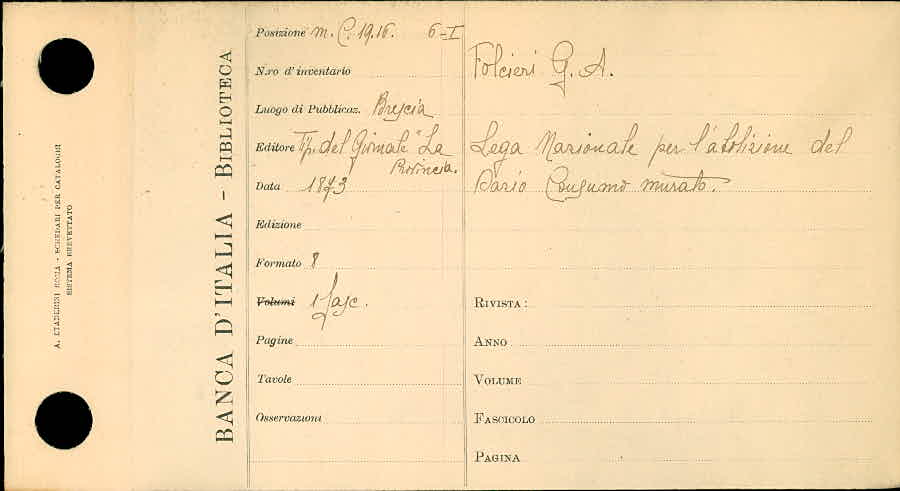 A. STADERINI ROMA - SCHEDARI PER CATALOGHI
SISTEMA BREVETTATO
BANCA D'ITALIA - BIBLIOTECA
Posizione m. C. 19.16. 6-I
N.ro d'inventario
Luogo di Pubblicaz. Brescia
Editore Tip. del Giornale "La
Provincia.
Data 1873
Edizione
Formato 8
Volumi 1 fasc.
Pagine
Tavole
Osservazioni
Folcieri G. A.
Lega Nazionale per l'abolizione del
Dazio Consumo murato.
RIVISTA:
ANNO
VOLUME
FASCICOLO
PAGINA